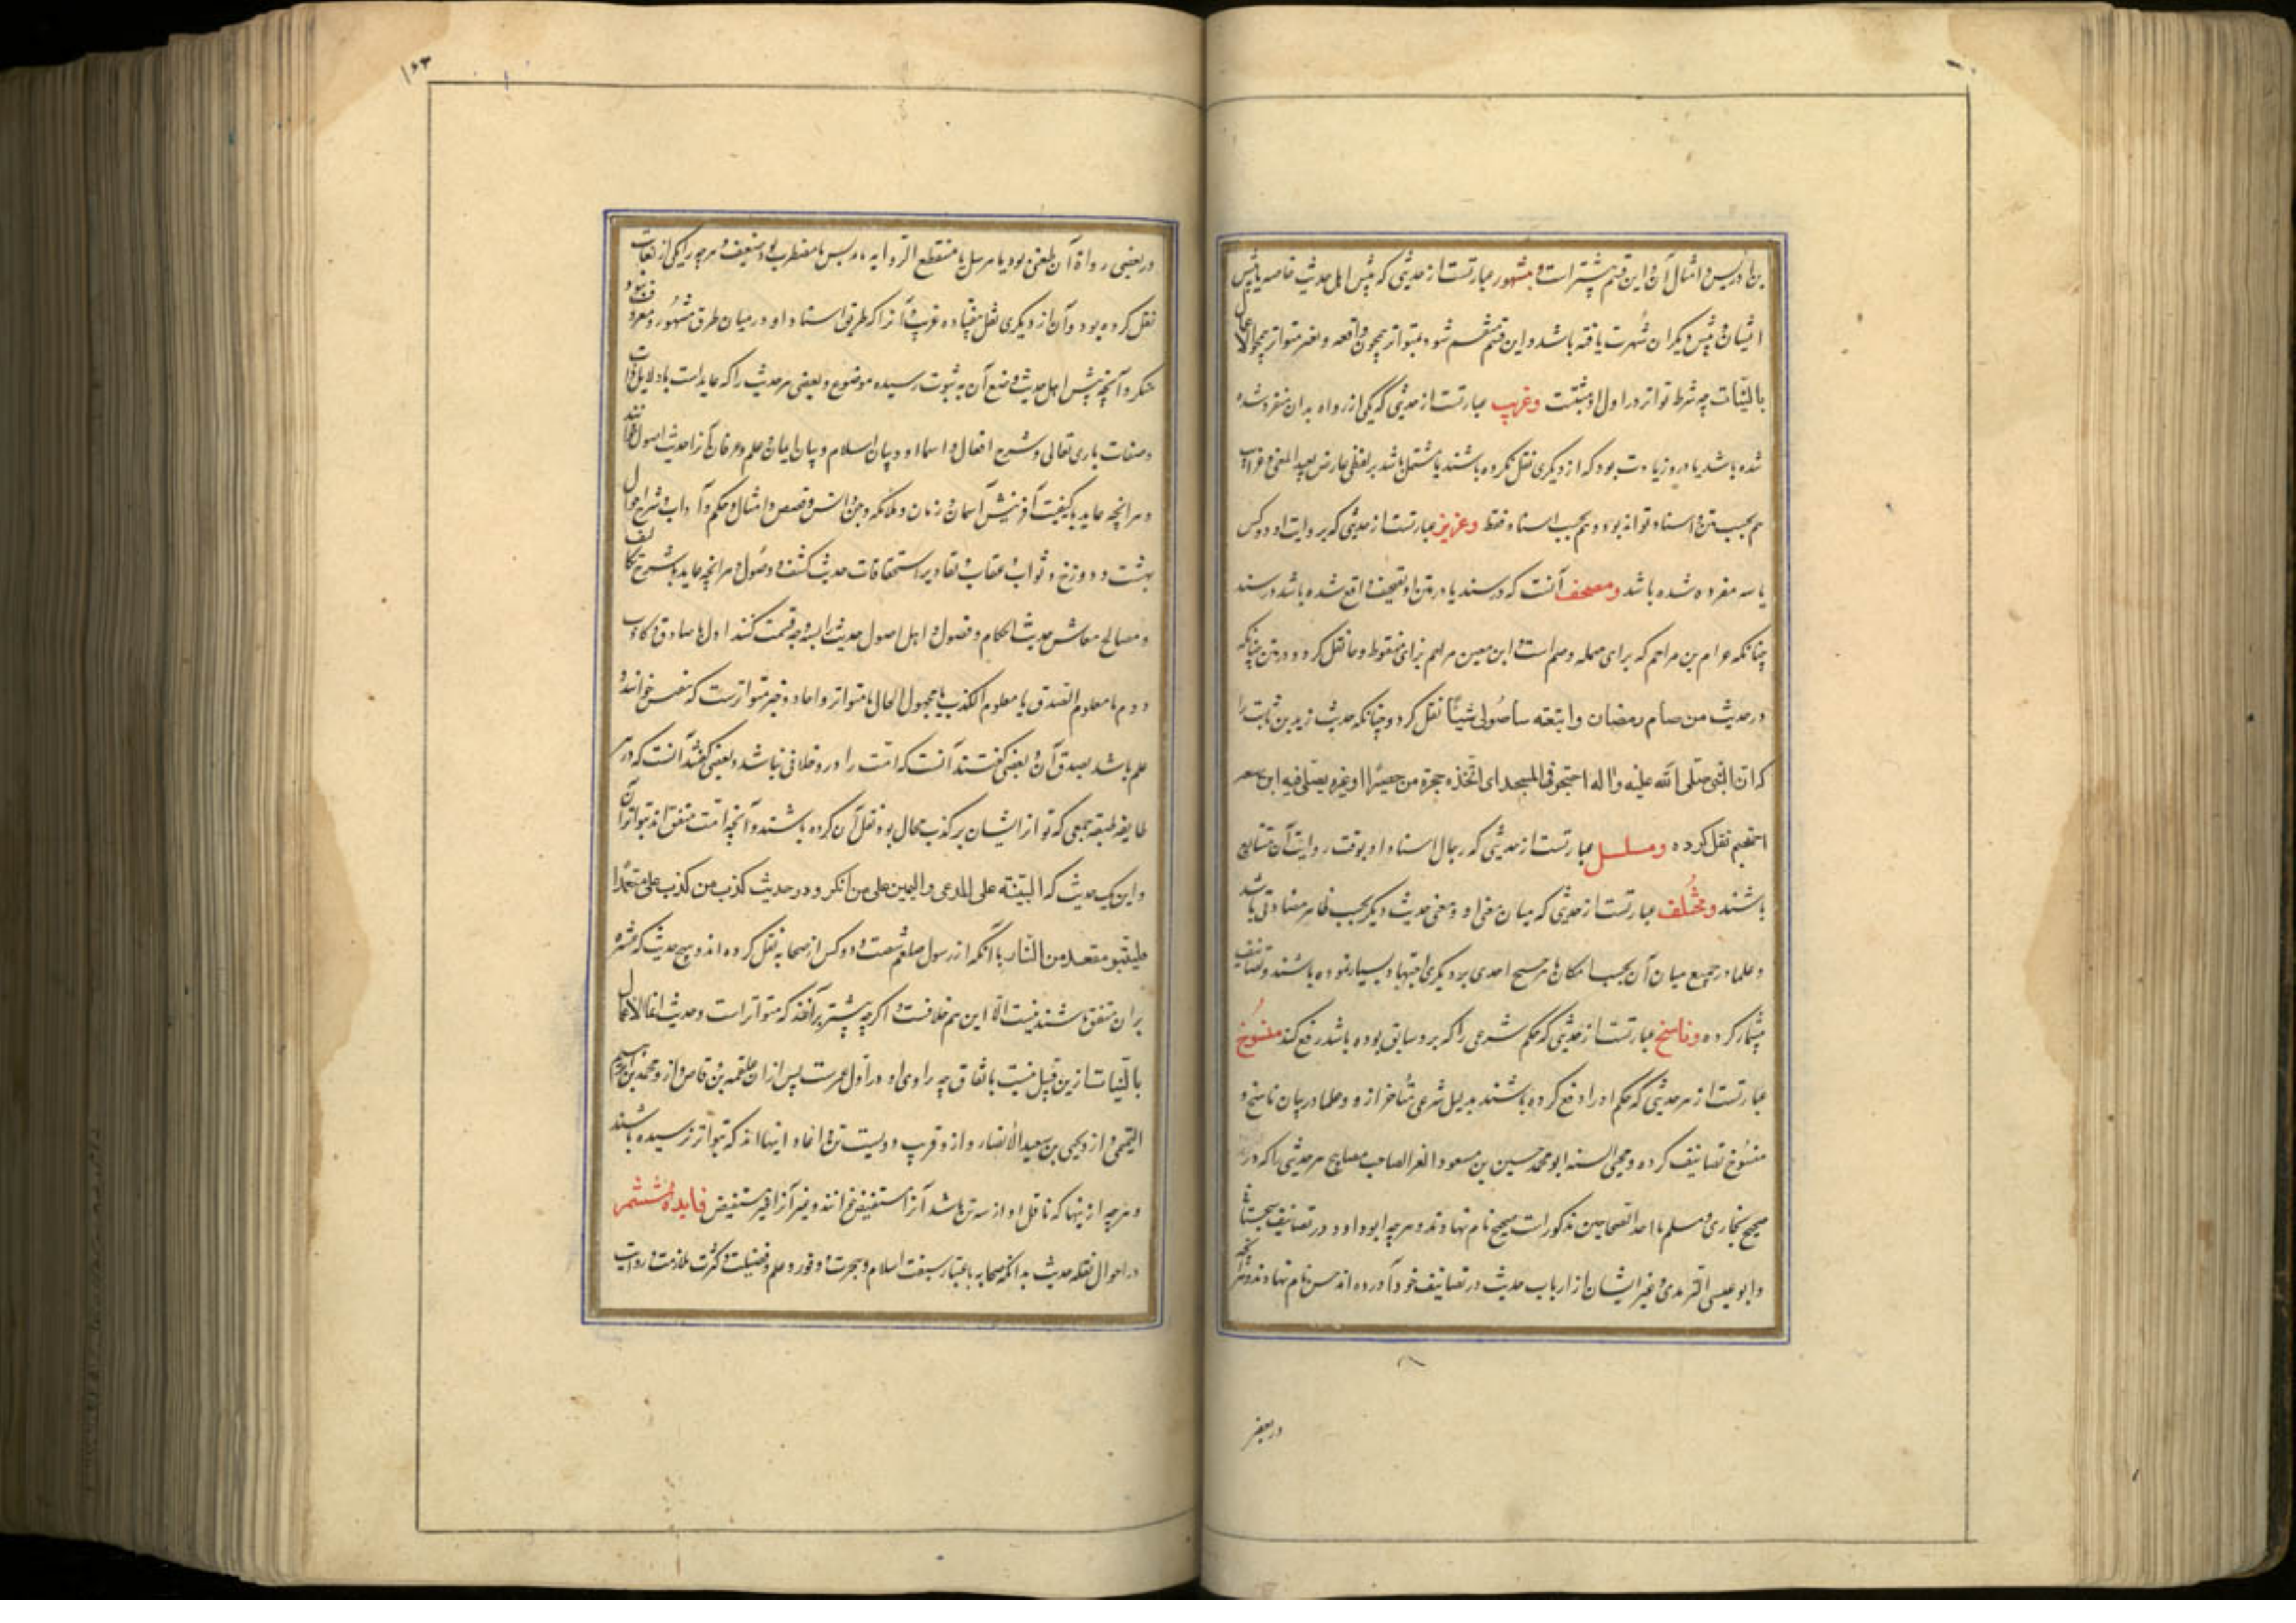 بن ادریس و امثال آن و این قسم بیشتر است و مشهور عبارتست از حدیثی که پیش اهل حدیث خاصه یا پیش
ایشان و پیش دیگران شهرت یافته باشد و این قسم منقسم شود بمتواتر همچون واقعه و بغیر متواتر همچو الاعمال
بالنیات چه شرط تواتر در اول او منتفیست وغریب عبارتست از حدیثی که یکی از رواه بدان منفرد شده
شده باشد یا درو زیادت بود که از دیگری نقل نکرده باشند یا مشتمل باشد بر لفظی عارض بعید المعنی و غرابت
هم بحسب متن و اسناد تواند بود و هم بحسب اسناد فقط وعزیز عبارتست از حدیثی که بروایت او دو کس
یا سه مفرد شده باشد ومصحف آنست که در سند یا در متن او تصحیف واقع شده باشد در سند
چنانکه عرام بن مراجم که برای مهمله و جیم است و ابن معین مراحم بزای منقوط و حا نقل کرد و در متن چنانکه
در حدیث من صام رمضان و اتبعه ستا صولی شیئا نقل کرد و چنانکه حدیث زید بن ثابت را
که ان النبی صلی الله علیه واله احتجر فی المسجد ای اتخذ حجرة من حصیر او غیره یصلی فیه ابن
احتجم نقل کرده ومسلسل عبارتست از حدیثی که رجال اسناد او بوقت روایت آن متتابع
باشند ومختلف عبارتست از حدیثی که میان معنی او و معنی حدیث دیگر بحسب ظاهر مضادتی باشد
و علما در جمیع میان آن بحسب امکان یا ترجیح احدی بر دیگری اجتهاد بسیار نموده باشند و تصانیف
بیشمار کرده وناسخ عبارتست از حدیثی که حکم شرعی را که برو سابق بوده باشد رفع کند منسوخ
عبارتست از هر حدیثی که حکم او را رفع کرده باشند بدلیل شرعی متأخر ازو و علما در بیان ناسخ و
منسوخ تصانیف کرده و محیی السنه ابو محمد حسین بن مسعود الفرا صاحب مصابیح هر حدیثی را که در
صحیح بخاری و مسلم یا احد الصحیحین مذکور است صحیح نام نهادند و هرچه ابو داود در تصانیف سجستانی
و ابو عیسی الترمدی و غیر ایشان از ارباب حدیث در تصانیف خود آورده اند حسن نام نهادند و هرآنچه
در بعضی
۱۶۳
در بعضی رواة آن طعنی بود یا مرسل یا منقطع الروایه یا مدلس یا مضطرب بود ضعیف و هرچه را یکی از ثقات
نقل کرده بود و آن از دیگری نقل نیفتاده غریب و آنرا که طریق اسناد او در میان طرق مشهور و معروف نبود
منکر و آنچه پیش اهل حدیث وضع آن به ثبوت رسیده موضوع و بعضی هر حدیث را که عایدات با دلایل ذات
و صفات باری تعالی و شرح افعال و اسماء او و بیان اسلام و بیان ایمان و علم و عرفان آنرا حدیث اصول خوانند
و هرانچه عاید با کیفیت آفرینش آسمان و زمان و ملائکه و جن و انس و قصص و امثال و حکم و آداب و شرح احوال
بهشت و دوزخ و ثواب و عقاب و تقادیر استحقاقات حدیث کشف و وصول و هرانچه عاید با شرح تکالیف
و مصالح معاش حدیث احکام و فضول و اهل اصول حدیث را بسه وجه قسمت کنند اول یا صادق و کاذب
دوم یا معلوم الصدق یا معلوم الکذب یا مجهول الحال یا متواتر و احاد و خبر متواترست که بنفس خوانند
علم باشد بصدق آن و بعضی گفتند آنست که امت را درو خلافی نباشد و بعضی گفتند آنست که در هر
طایفه طبقه جمعی که تواز ایشان بر کذب محال بود نقل آن کرده باشند و آنچه امت متفق اند بتواتر آن
و این یک حدیث که البینة علی المدعی والیمین علی من انکر و در حدیث کذب من کذب علی متعمدا
فلیتبوء مقعده من النار با آنکه از رسول صلعم شصت و دو کس از صحابه نقل کرده اند و هیچ حدیث که عشره
بران متفق باشند نیست الا این هم خلافست و اگرچه بیشتر برآنند که متواتر است و حدیث انما الاعمال
بالنیات ازین قبیل نیست باتفاق چه راوی او در اول عمرست پس ازان علقمه بن وقاص و ازو محمد بن ابراهیم
التیمی و ازو یحیی بن سعید الانصار و ازو قریب دویست تن و احاد اینها اند که بتواتر نرسیده باشند
و هرچه از ینها که ناقل او از سه تن باشد آنرا مستفیض خوانند و غیر آنرا غیر مستفیض فایدهٔ ششم
در احوال نقله حدیث بدانکه صحابه باعتبار سبقت اسلام و هجرت و وفور و علم و فضیلت و کثرت ملازمت و روایت